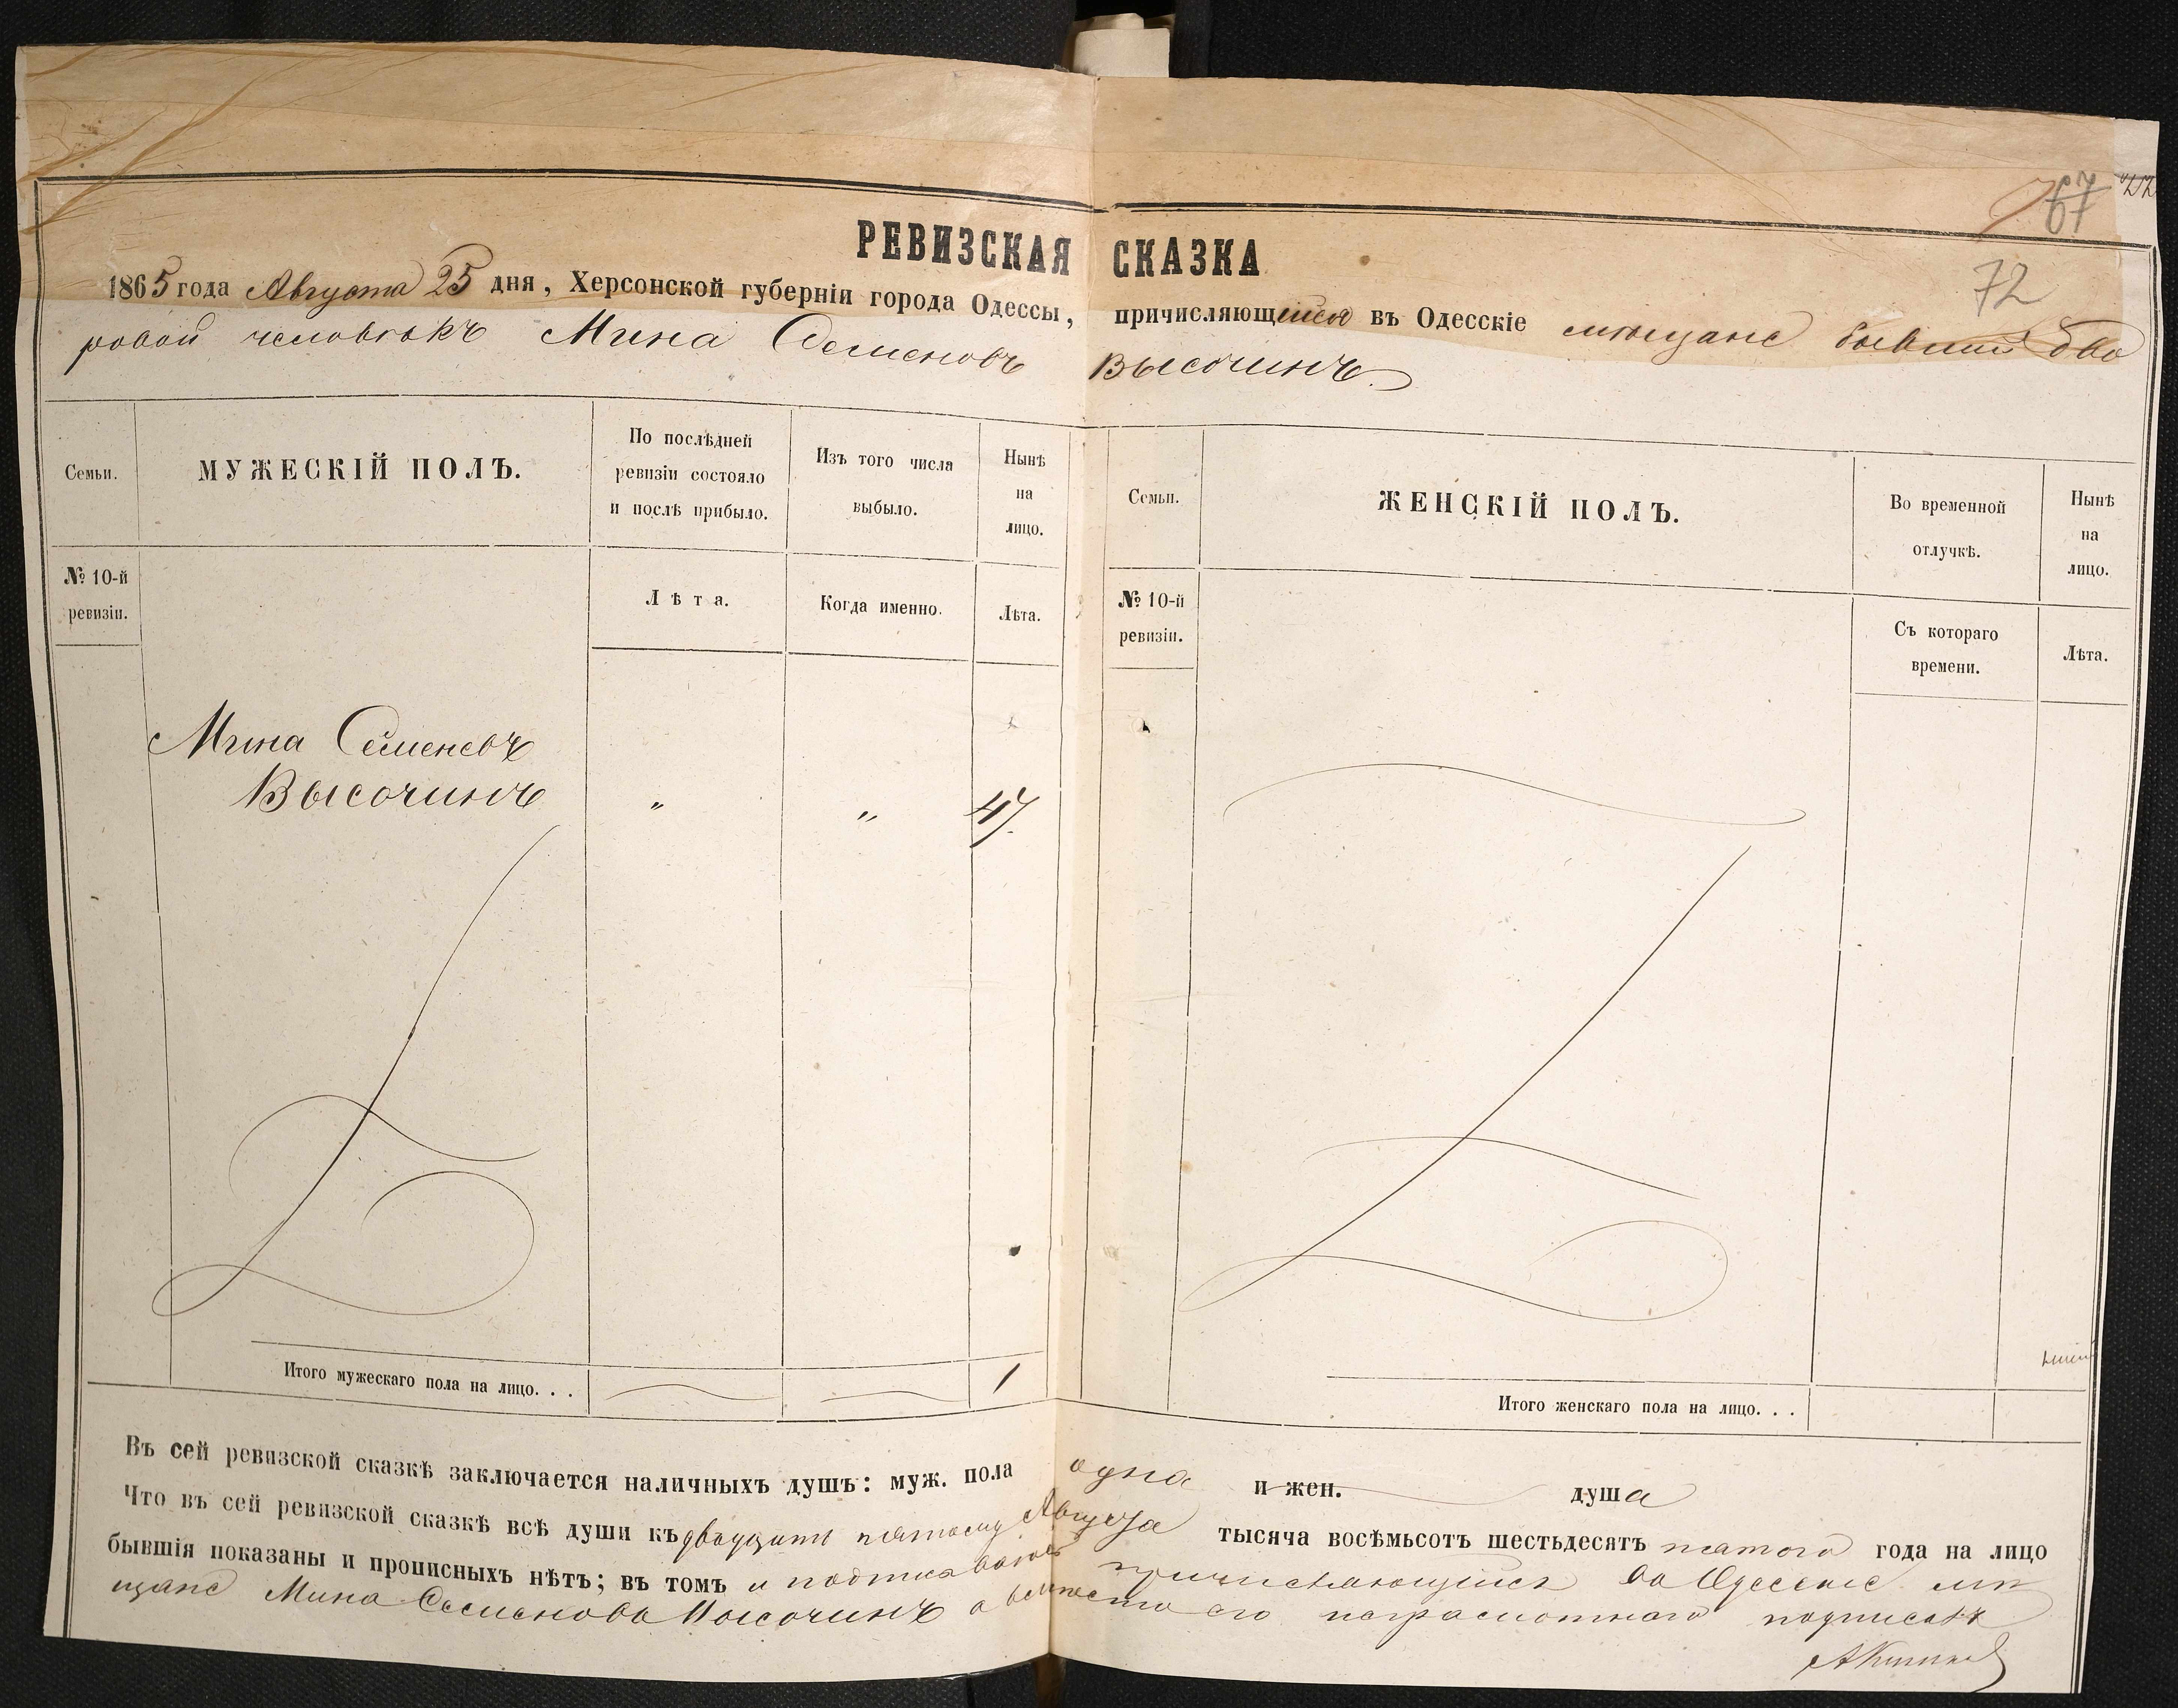 67
72
РЕВИЗСКАЯ СКАЗКА
1865 года Августа 25 дня, Херсонской губерніи города Одессы, причисляющійся въ Одесскіе мѣщане бывшій дво
ровой человѣкъ Мина Семеновъ Высочинъ
Семьи.
МУЖЕСКІЙ ПОЛЪ.
По послѣдней
ревизіи состояло
и послѣ прибыло.
Изъ того числа
выбыло.
Нынѣ
на
лицо.
№ 10-й
ревизіи.
Лѣта.
Когда именно.
Лѣта.
Мина Семеновъ
Высочинъ " " 47.
Итого мужескаго пола на лицо. . . 1
Семьи.
ЖЕНСКІЙ ПОЛЪ.
Во временной
отлучкѣ.
Нынѣ
на
лицо.
№ 10-й
ревизіи.
Съ котораго
времени.
Лѣта.
Итого женскаго пола на лицо. . .
Въ сей ревизской сказкѣ заключается наличныхъ душъ: муж. пола одна и жен. душа
Что въ сей ревизской сказкѣ всѣ души къ двадцать пятому Августа тысяча восѣмьсотъ шестьдесятъ пятого года на лицо
бывшія показаны и прописныхъ нѣтъ; въ томъ и подписался причисляющійся въ Одесские мѣ
щане Мина Семеновъ Высочинъ а вместо его неграмотнаго подписалъ